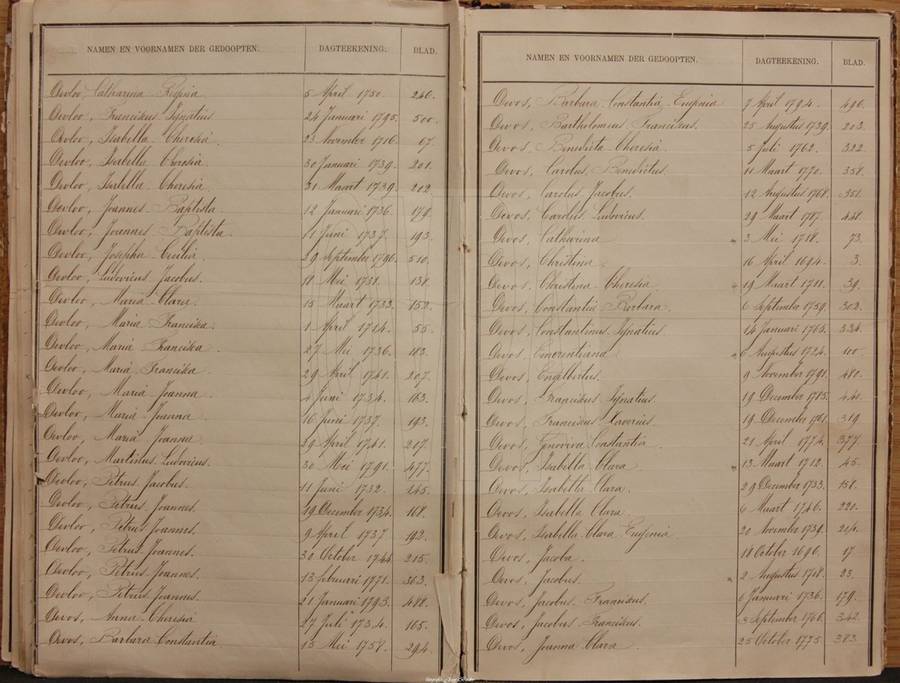 NAMEN EN VOORNAMEN DER GEDOOPTEN. DAGTEEKENING. BLAD.
Devloo, Catharina Regina 5 April 1750. 246.
Devloo, Franciscus Ignatius 24 Januari 1795. 500.
Devloo, Isabella Theresia 23 November 1716. 67.
Devloo, Isabella Theresia. 30 Januari 1739. 201.
Devloo, Isabella Theresia 31 Maart 1739. 202
Devloo, Joannes Baptista 12 Januari 1736. 179.
Devloo, Joannes Baptista. 11 Juni 1737. 193.
Devloo, Josepha Cecilia 29 September 1796. 510.
Devloo, Ludovicus Jacobus. 18 Mei 1731. 138.
Devloo, Maria Clara. 15 Maart 1733. 152.
Devloo, Maria Francisca 1 April 1714. 55.
Devloo, Maria Francisca. 27 Mei 1736. 183.
Devloo, Maria Francisca 29 April 1741. 207.
Devloo, Maria Joanna 4 Juni 1734. 163.
Devloo, Maria Joanna. 16 Juni 1737. 193.
Devloo, Maria Joanna 29 April 1741. 217.
Devloo, Martinus Ludovicus. 30 Mei 1791. 477.
Devloo, Petrus Jacobus. 11 Juni 1732. 145.
Devloo, Petrus Joannes. 19 December 1734. 168.
Devloo, Petrus Joannes. 9 April 1737 192.
Devloo, Petrus Joannes. 30 October 1744. 215.
Devloo, Petrus Joannes. 13 februari 1771. 363.
Devloo, Petrus Joannes. 21 Januari 1793. 488.
Devos, Anna Theresia 27 Juli 1734. 165.
Devos, Barbara Constantia 15 Mei 1758. 294.
NAMEN EN VOORNAMEN DER GEDOOPTEN. DAGTEEKENING. BLAD.
Devos, Barbara Constantia Eugenia 7 April 1794. 496.
Devos, Bartholomeus Franciscus. 25 Augustus 1739. 203.
Devos, Benedicta Theresia 5 Juli 1762. 322.
Devos, Carolus Benedictus. 11 Maart 1770. 358.
Devos, Carolus Jacobus. 12 Augustus 1768. 351.
Devos, Carolus Ludovicus. 29 Maart 1787. 448.
Devos, Catharina 3 Mei 1718. 73.
Devos, Christina 16 April 1694. 3.
Devos, Christina Theresia 19 Maart 1711. 39.
Devos, Constantia Barbara. 6 Septembe 1759. 302.
Devos, Constantinus Ignatius 14 Januari 1765. 334.
Devos, Emerentiana 6 Augustus 1724. 100
Devos, Engelbertus. 9 November 1791. 480.
Devos, Franciscus Ignatius. 19 December 1785. 441.
Devos, Franciscus Xaverius. 19 December 1761. 319.
Devos, Genoveva Constantia 21 April 1774. 377.
Devos, Isabella Clara 13 Maart 1712. 45.
Devos, Isabella Clara. 29 December 1733. 158.
Devos, Isabella Clara. 6 Maart 1746. 220.
Devos, Isabella Clara Eugenia 20 November 1738.
Devos, Jacoba. 18 October 1696. 17
Devos, Jacobus. 2 Augustus 1708. 23.
Devos, Jacobus Franciscus. 6 Januari 1736. 179.
Devos, Jacobus Franciscus. 3 September 1766. 342.
Devos, Joanna Clara. 25 October 1775. 383.